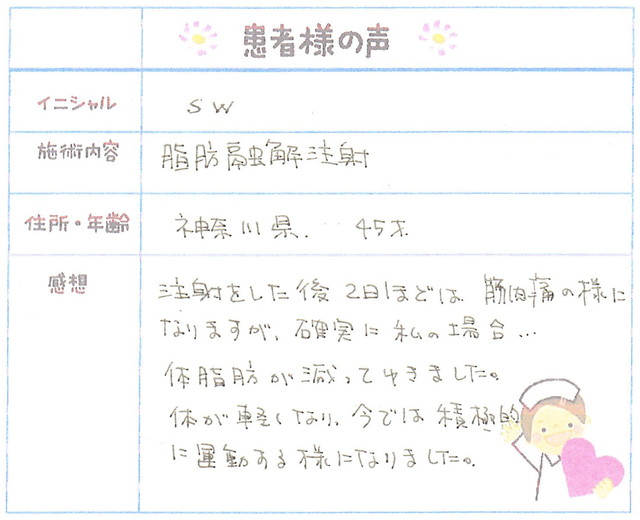 患者様の声
イニシャル SW
施術内容 脂肪融解注射
住所・年齢 神奈川県. 45才.
感想
注射をした後2日ほどは筋肉痛の様に
なりますが、確実に私の場合…
体脂肪が減ってゆきました。
体が軽くなり、今では積極的
に運動する様になりました。